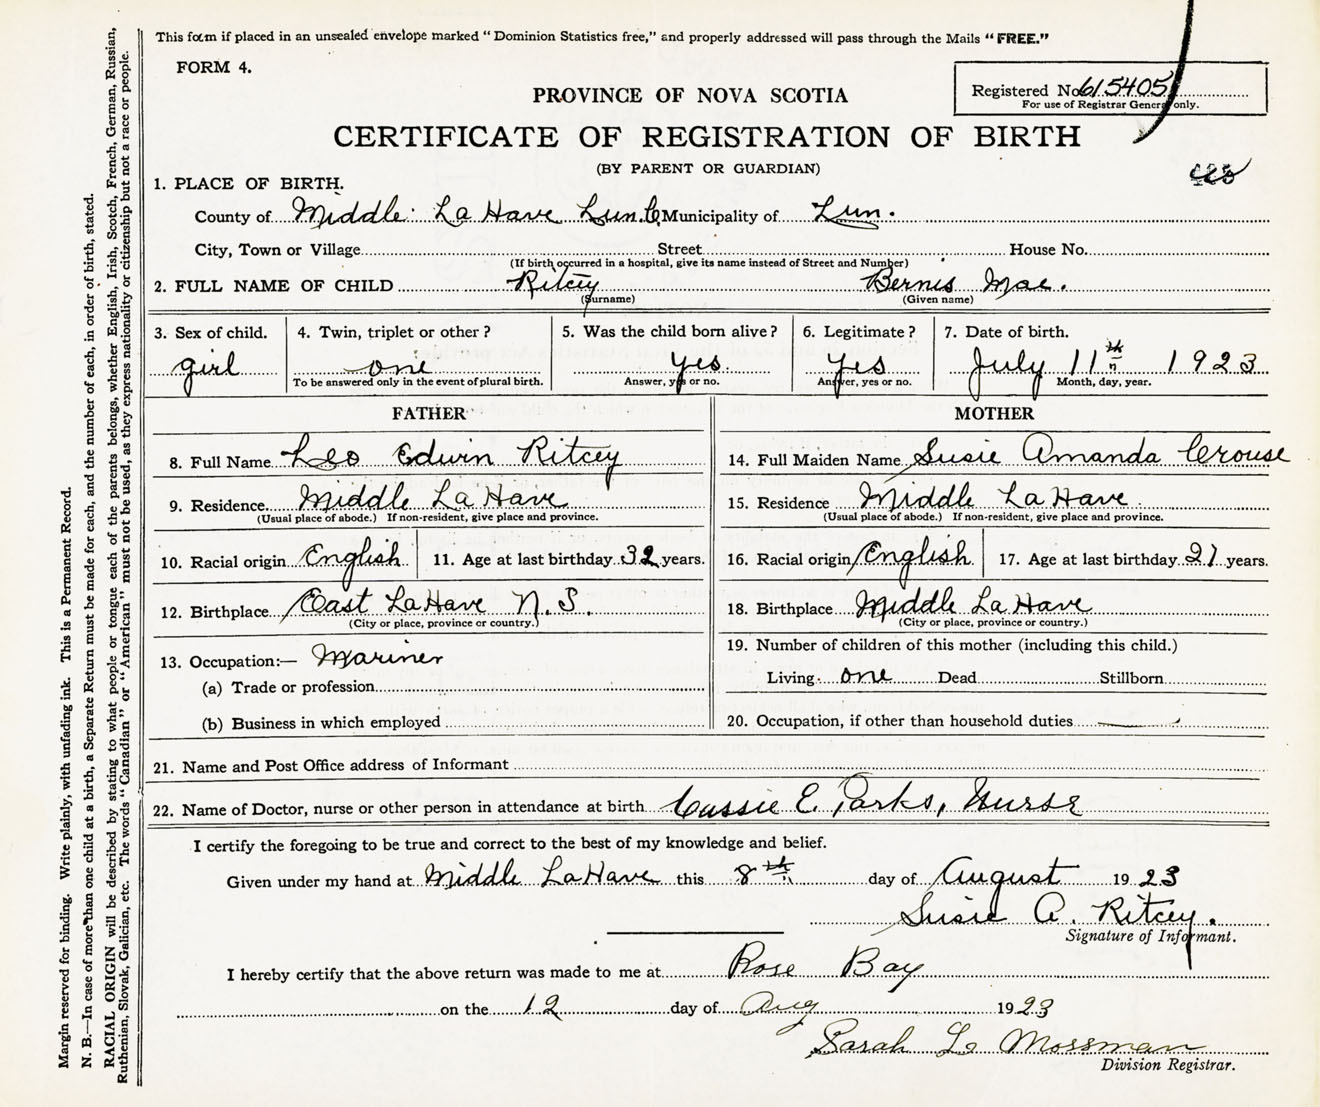 This form if placed in an unsealed envelope marked "Dominion Statistics free," and properly addressed will pass through the Mails "FREE."
FORM 4.
Registered No. 615405
For use of Registrar General only.
PROVINCE OF NOVA SCOTIA
CERTIFICATE OF REGISTRATION OF BIRTH
(BY PARENT OR GUARDIAN)
1. PLACE OF BIRTH.
County of Middle La Have Lun. Co Municipality of Lun.
City, Town or Village Street House No.
(If birth occurred in a hospital, give its name instead of Street and Number)
2. FULL NAME OF CHILD Ritcey Bernis Mae.
(Surname) (Given name)
3. Sex of child. 4. Twin, triplet or other? 5. Was the child born alive? 6. Legitimate? 7. Date of birth.
girl one yes. Yes July 11th 1923
To be answered only in the event of plural birth. Answer, yes or no. Answer, yes or no. Month, day, year.
FATHER MOTHER
8. Full Name Leo Edwin Ritcey 14. Full Maiden Name Susie Amanda Crouse
9. Residence Middle La Have 15. Residence Middle La Have
(Usual place of abode.) If non-resident, give place and province. (Usual place of abode.) If non-resident, give place and province.
10. Racial origin English 11. Age at last birthday 32 years. 16. Racial origin English 17. Age at last birthday 21 years.
12. Birthplace East LaHave N.S. 18. Birthplace Middle La Have
(City or place, province or country.) (City or place, province or country.)
13. Occupation:— Mariner 19. Number of children of this mother (including this child.)
(a) Trade or profession Living one Dead Stillborn
(b) Business in which employed 20. Occupation, if other than household duties
21. Name and Post Office address of Informant
22. Name of Doctor, nurse or other person in attendance at birth Cassie E. Parks, Nurse
I certify the foregoing to be true and correct to the best of my knowledge and belief.
Given under my hand at Middle La Have this 8th day of August 1923
Susie A. Ritcey.
Signature of Informant.
I hereby certify that the above return was made to me at Rose Bay
on the 12 day of Aug 1923
Sarah L. Mossman
Division Registrar.
Margin reserved for binding. Write plainly, with unfading ink. This is a Permanent Record.
N. B.—In case of more than one child at a birth, a Separate Return must be made for each, and the number of each, in order of birth, stated.
RACIAL ORIGIN will be described by stating to what people or tongue each of the parents belongs, whether English, Irish, Scotch, French, German, Russian,
Ruthenian, Slovak, Galician, etc. The words "Canadian" or "American" must not be used, as they express nationality or citizenship but not a race or people.